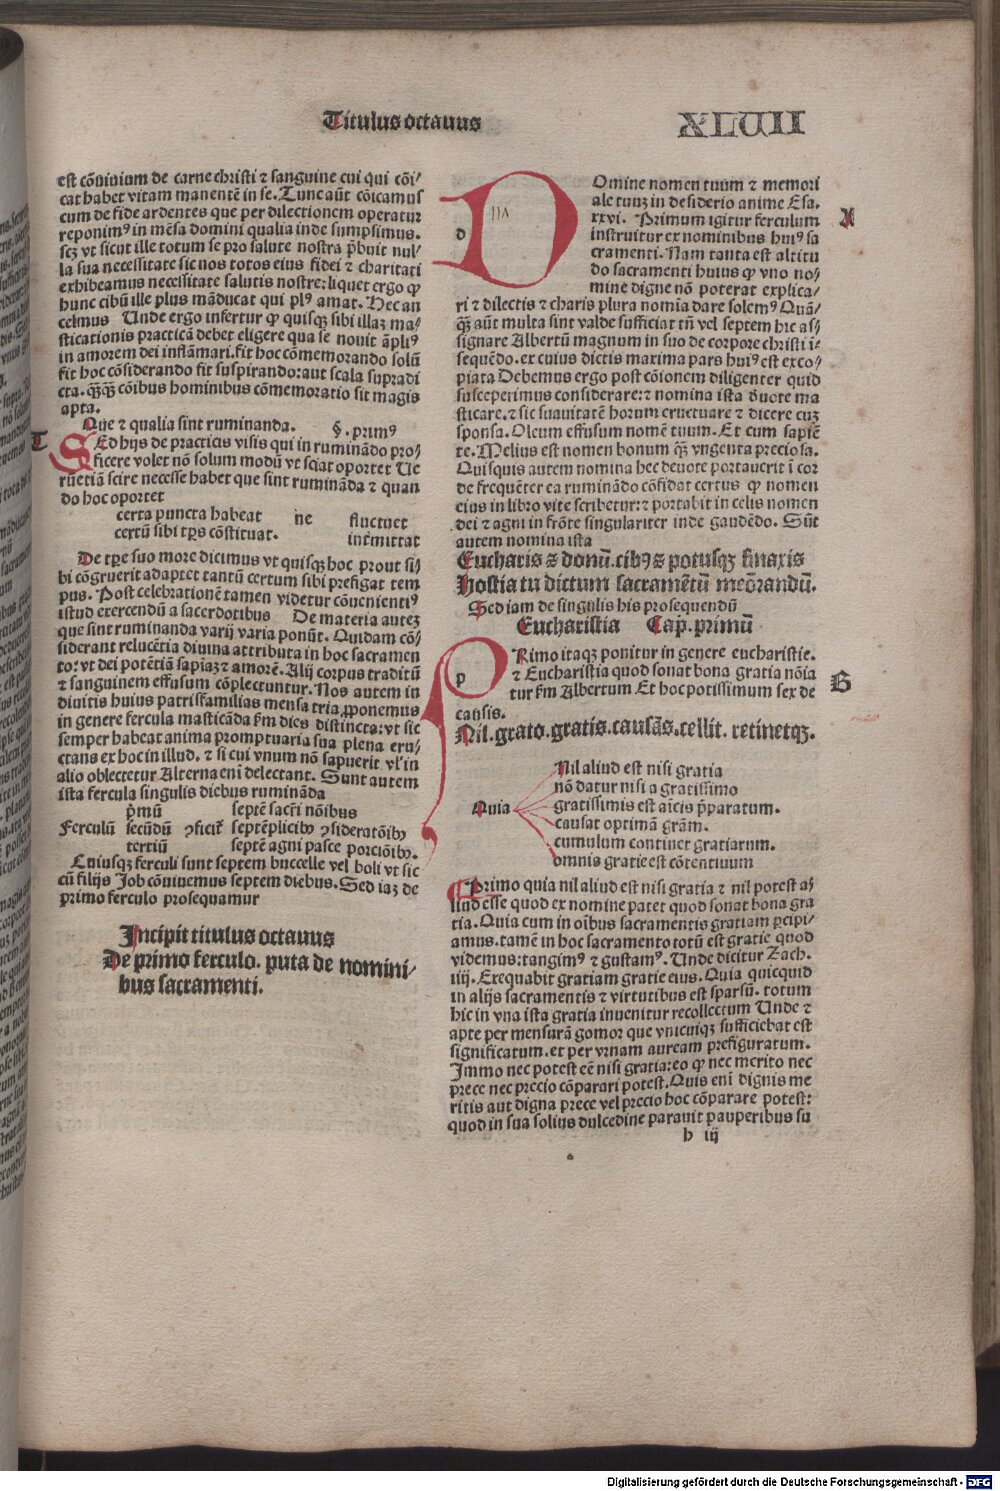 Titulus octauus
XLVII
est cōuiuium de carne christi ⁊ sanguine cui qui cōi⸗
cat habet vitam manentē in se. Tunc aūt cōicamus
cum de fide ardentes que per dilectionem operatur
reponimꝰ in mēsa domini qualia inde sumpsimus.
scꝫ vt sicut ille totum se pro salute nostra p̄buit nul⸗
la sua necessitate sic nos totos eius fidei ⁊ charitati
exhibeamus necessitate salutis nostre: liquet ergo ꝙ
hunc cibū ille plus māducat qui plꝰ amat. Hec an
celmus Unde ergo infertur ꝙ quisqꝫ sibi illaꝫ ma⸗
sticationis practicā debet eligere qua se nouit āpliꝰ
in amorem dei inflāmari. fit hoc cōmemorando solū
fit hoc cōsiderando fit suspirando: aut scala supradi
cta. q̄qꝫ cōibus hominibus cōmemoratio sit magis
apta.
Que ⁊ qualia sint ruminanda. §. primꝰ
T
SEd hijs de practicis visis qui in ruminādo pro⸗
ficere volet nō solum modū vt sciat oportet Ue
rūetiā scire necesse habet que sint rumināda ⁊ quan
do hoc oportet
certa puncta habeat ne fluctuet
certū sibi tp̄s cōstituat. intermittat
De tp̄e suo more dicimus vt quisqꝫ hoc prout si⸗
bi cōgruerit adaptet tantū certum sibi prefigat tem
pus. Post celebrationē tamen videtur cōuenientiꝰ
istud exercendū a sacerdotibus De materia auteꝫ
que sint ruminanda varij varia ponūt. Quidam cō⸗
siderant relucētia diuina attributa in hoc sacramen
to: vt dei potētiā sapiaꝫ ⁊ amorē. Alij corpus traditū
⁊ sanguinem effusum cōplectuntur. Nos autem in
diuitis huius patrisfamilias mensa tria ꝓponemus
in genere fercula masticāda km dies distincta: vt sic
semper habeat anima promptuaria sua plena eru⸗
ctans ex hoc in illud. ⁊ si cui vnum nō sapuerit vl' in
alio oblectetur Alterna eni delectant. Sunt autem
ista fercula singulis diebus rumināda
p̄mū septē sacri nōibus
Ferculū secūdū ꝯficit septēplicibꝰ ꝯsideratōibꝰ
tertiū septē agni pasce porciōibꝰ.
Cuiusqꝫ ferculi sunt septem buccelle vel boli vt sic
cū filijs Job cōuiuemus septem diebus. Sed iaꝫ de
primo ferculo prosequamur
Incipit titulus octauus
De primo ferculo. puta de nomini⸗
bus sacramenti.
d
DOmine nomen tuum ⁊ memori
ale tuuꝫ in desiderio anime Esa.
xxvi. Primum igitur ferculum
instruitur ex nominibus huiꝰ sa
cramenti. Nam tanta est altitu
do sacramenti huius ꝙ vno no⸗
mine digne nō poterat explica⸗
ri ⁊ dilectis ⁊ charis plura nomia dare solemꝰ Quā⸗
qꝫ aūt multa sint valde sufficiat tn̄ vel septem hic as⸗
signare Albertū magnum in suo de corpore christi i⸗
sequēdo. ex cuius dictis maxima pars huiꝰ est exco⸗
piata Debemus ergo post cōionem diligenter quid
susceperimus considerare: ⁊ nomina ista deuote ma
sticare. ⁊ sic suauitatē horum eructuare ⁊ dicere cuꝫ
sponsa. Oleum effusum nomē tuum. Et cum sapiē
te. Melius est nomen bonum qꝫ vngenta preciosa.
Quisquis autem nomina hec deuote portauerit i cor
de frequēter ea ruminādo cōfidat certus ꝙ nomen
eius in libro vite scribetur: ⁊ portabit in celis nomen
dei ⁊ agni in frōte singulariter inde gaudēdo. Sūt
autem nomina ista
Eucharis ⁊ donū. cibꝰ ⁊ potusqꝫ sinaxis
Hostia tu dictum sacramētū meōrandū.
Sed iam de singulis his prosequendū
Eucharistia Cap. primū
p
PRimo itaqꝫ ponitur in genere eucharistie.
⁊ Eucharistia quod sonat bona gratia nōia
tur km Albertum Et hoc potissimum sex de
B
causis.
Nil. grato. gratis. causās. cellit. retinetqꝫ.
Nil aliud est nisi gratia
nō datur nisi a gratissimo
Quia gratissimis est aīcis p̄paratum.
causat optimā grām.
cumulum continet gratiarum.
omnis gratie est cōtentiuum
Primo quia nil aliud est nisi gratia ⁊ nil potest a⸗
liud esse quod ex nomine patet quod sonat bona gra
tia. Quia cum in oībus sacramentis gratiam ꝑcipi⸗
amus. tamē in hoc sacramento totū est gratie quod
videmus: tangimꝰ ⁊ gustamꝰ. Unde dicitur Zach.
iiij. Exequabit gratiam gratie eius. Quia quicquid
in alijs sacramentis ⁊ virtutibus est sparsū. totum
hic in vna ista gratia inuenitur recollectum Unde ⁊
apte per mensurā gomor que vnicuiqꝫ sufficiebat est
significatum. et per vrnam auream prefiguratum.
Immo nec potest eē nisi gratia: eo ꝙ nec merito nec
prece nec precio cōparari potest. Quis eni dignis me
ritis aut digna prece vel precio hoc cōparare potest:
quod in sua solius dulcedine parauit pauperibus su
h iij
Digitalisierung gefördert durch die Deutsche Forschungsgemeinschaft - DFG